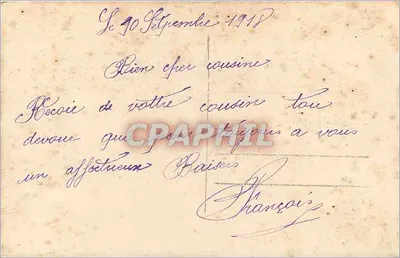 Le 90 Setpembre 1918
Bien cher cousine
Recoie de vottre cousin tou
devoue que a vous
un affectueux Baisers
François
CPAPHIL